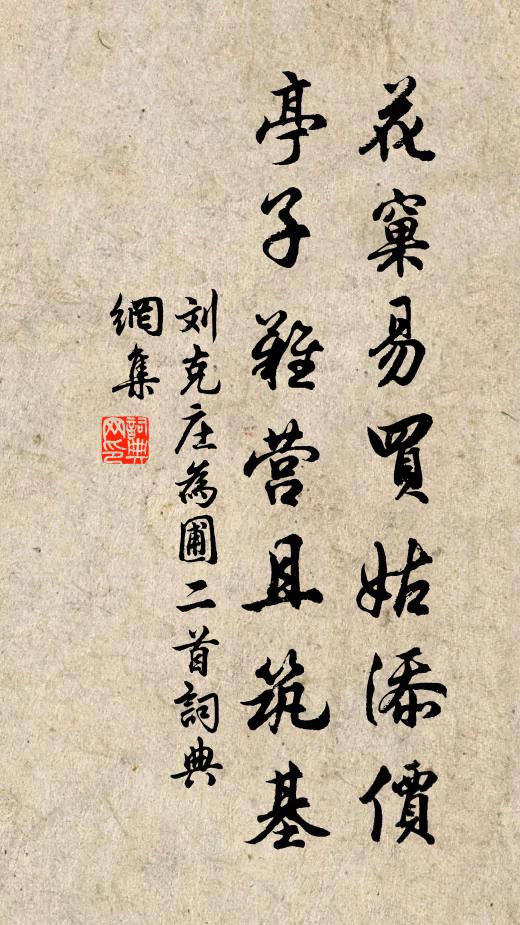 花窠易買姑添價
亭子難营且筑基
刘克庄為圃二首詞典
網集
詞典網印